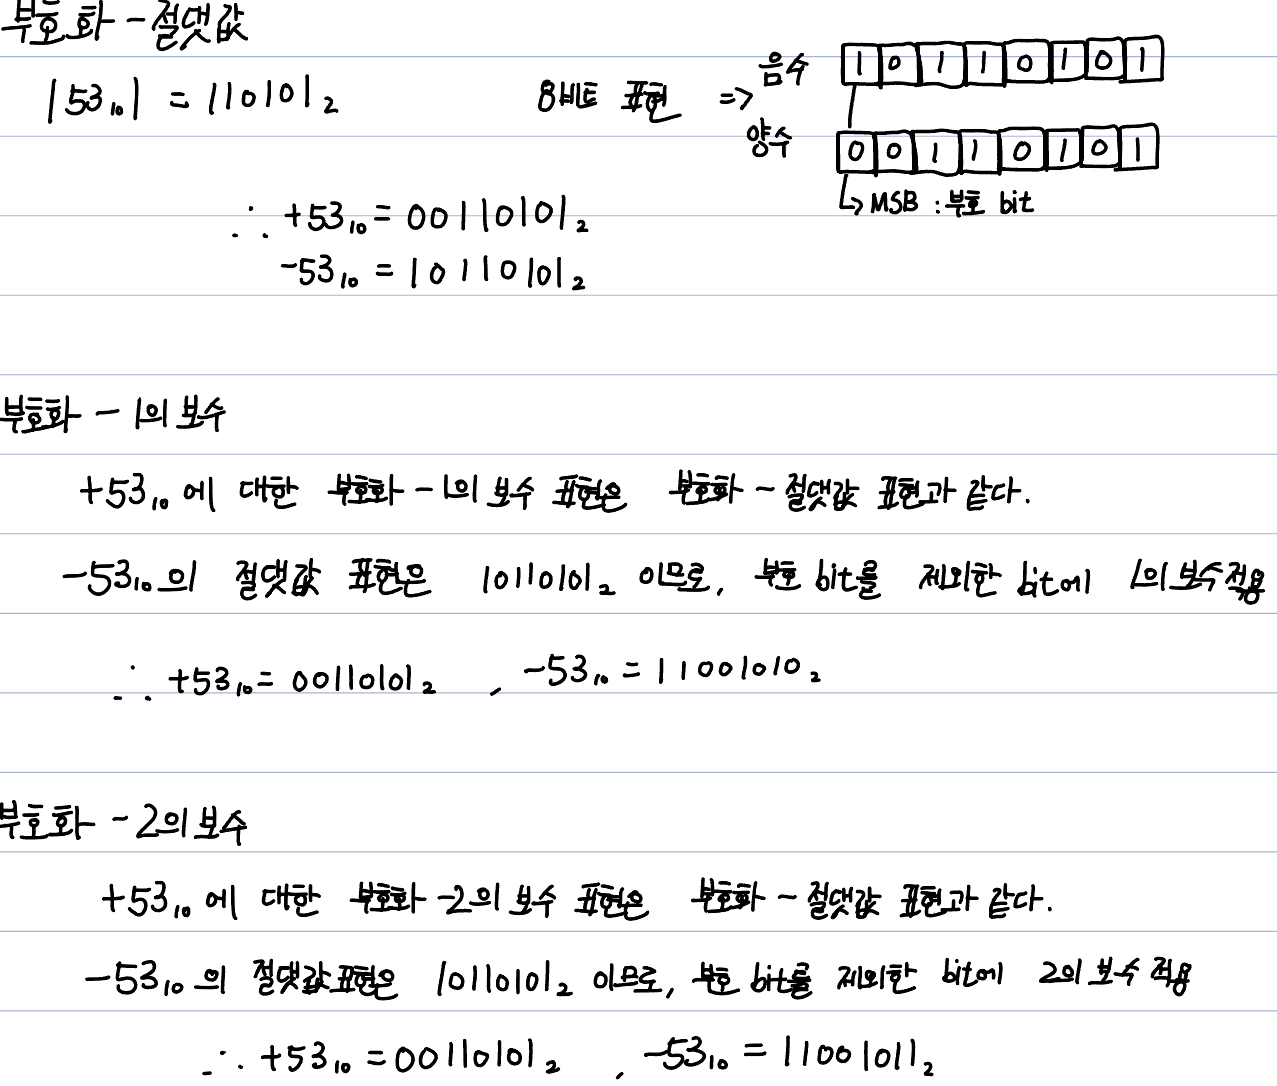 부호화 - 절댓값
|53₁₀| = 110101₂ 8비트 표현 => 음수 1 0 1 1 0 1 0 1
양수 0 0 1 1 0 1 0 1
↳ MSB : 부호 bit
∴ +53₁₀ = 00110101₂
-53₁₀ = 10110101₂
부호화 - 1의 보수
+53₁₀에 대한 부호화 - 1의 보수 표현은 부호화 - 절댓값 표현과 같다.
-53₁₀의 절댓값 표현은 10110101₂ 이므로, 부호 bit를 제외한 bit에 1의 보수 적용
∴ +53₁₀ = 00110101₂ , -53₁₀ = 11001010₂
부호화 - 2의 보수
+53₁₀에 대한 부호화 -2의 보수 표현은 부호화 - 절댓값 표현과 같다.
-53₁₀의 절댓값표현은 10110101₂ 이므로, 부호 bit를 제외한 bit에 2의 보수 적용
∴ +53₁₀ = 00110101₂ , -53₁₀ = 11001011₂